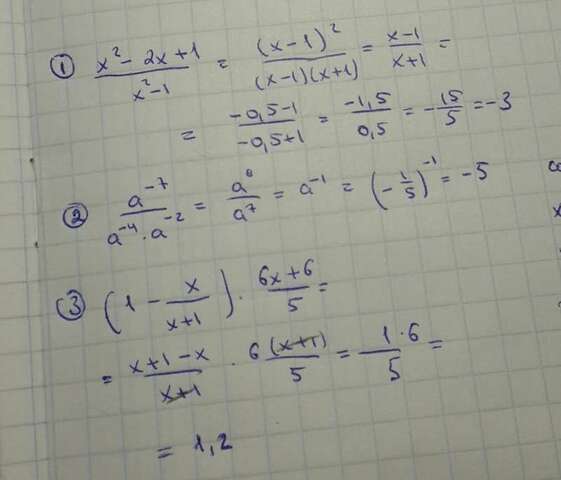 ① (x² - 2x + 1)/(x² - 1) = (x-1)²/((x-1)(x+1)) = (x-1)/(x+1) =
= (-0,5-1)/(-0,5+1) = (-1,5)/(0,5) = -15/5 = -3
② a⁻⁷/(a⁻⁴·a⁻²) = a⁶/a⁷ = a⁻¹ = (-1/5)⁻¹ = -5
③ (1 - x/(x+1)) · (6x+6)/5 =
= (x+1-x)/(x+1) · 6(x+1)/5 = (1·6)/5 =
= 1,2